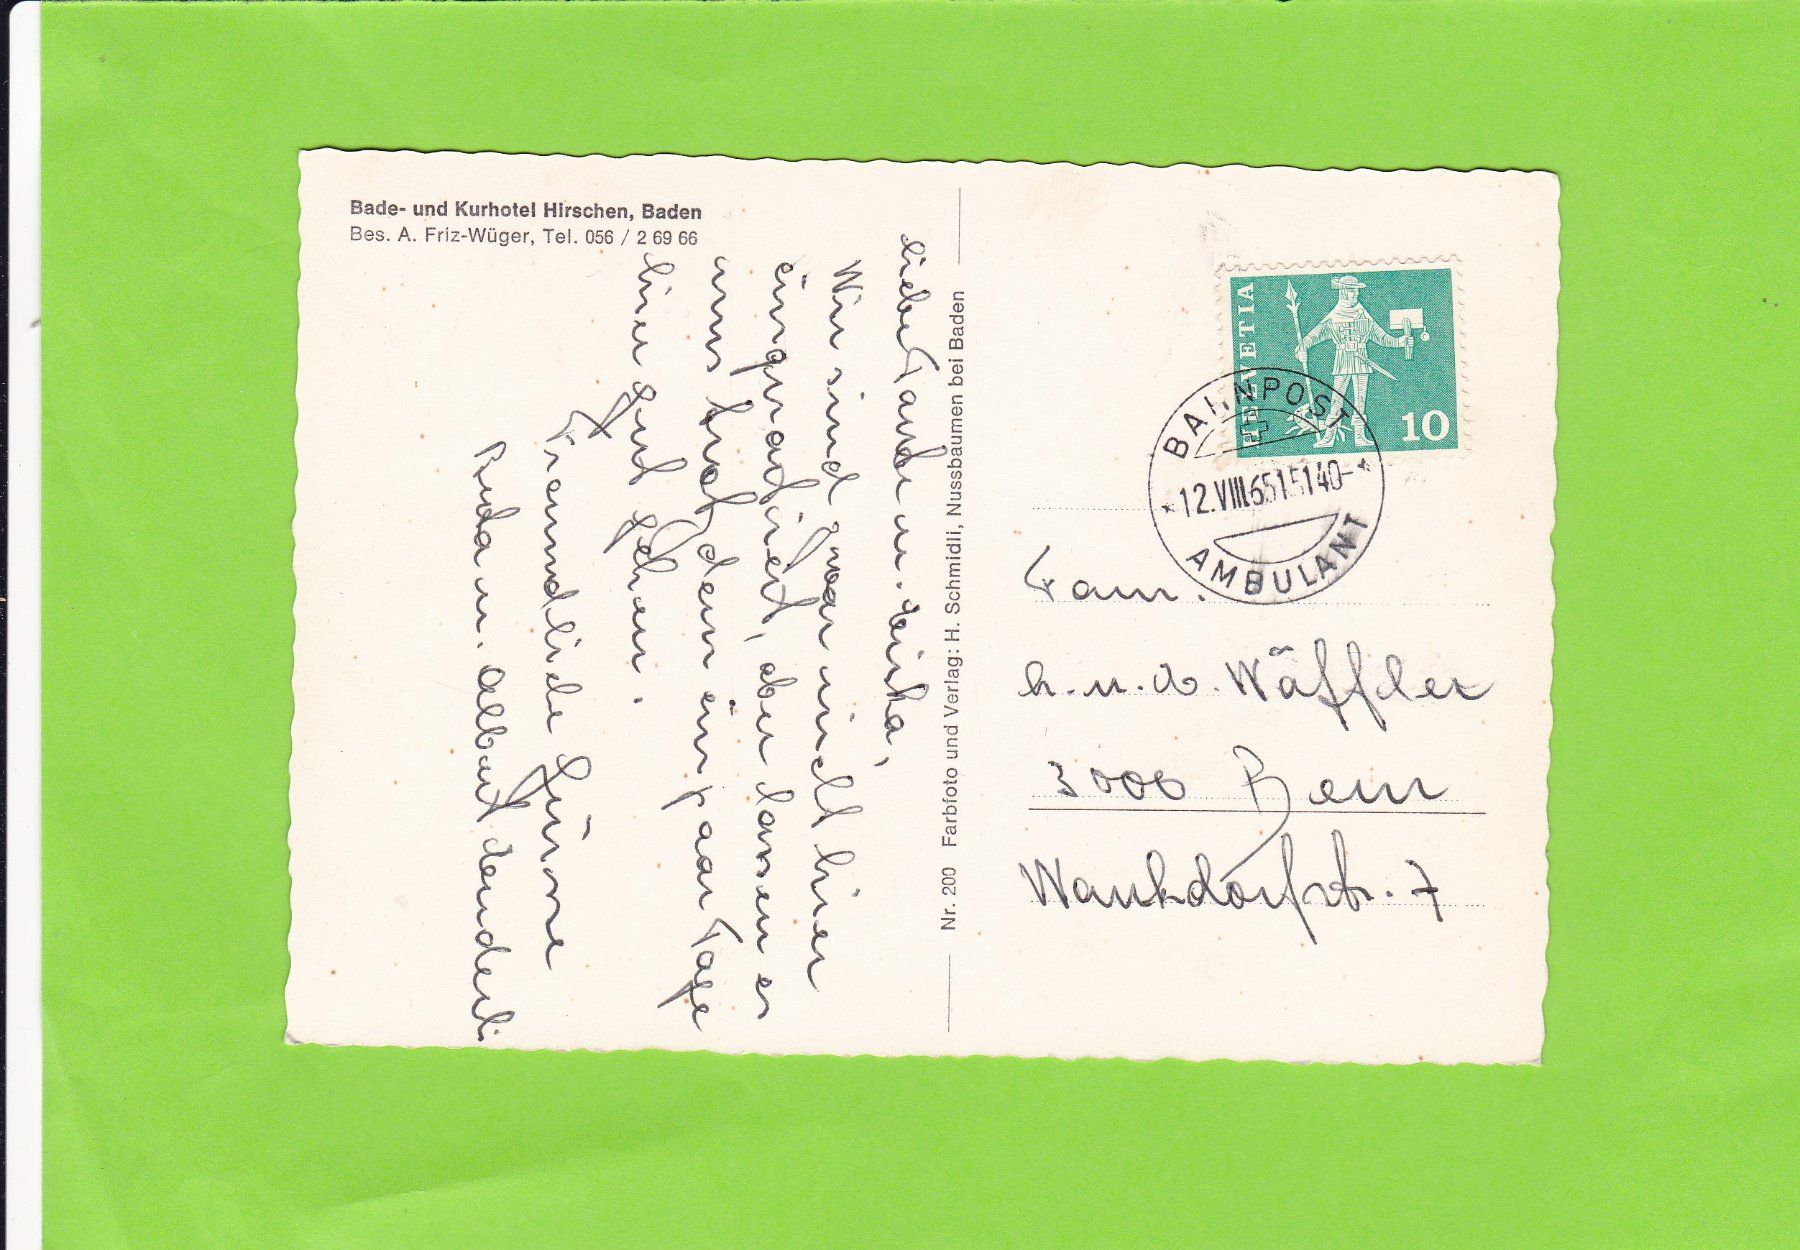 Bade- und Kurhotel Hirschen, Baden
Bes. A. Friz-Wüger, Tel. 056 / 2 69 66
liebe Tante u.
Wir sind zwar nicht hier
einquartiert, aber lassen es
uns trotzdem ein paar Tage
hier gut gehen.
Freundliche Grüsse
u. Albert
Nr. 200 Farbfoto und Verlag: H. Schmidli, Nussbaumen bei Baden
HELVETIA
10
BAHNPOST
12.VIII.65
AMBULANT
Fam.
Wäffler
3000 Bern
Wankdorfstr. 7